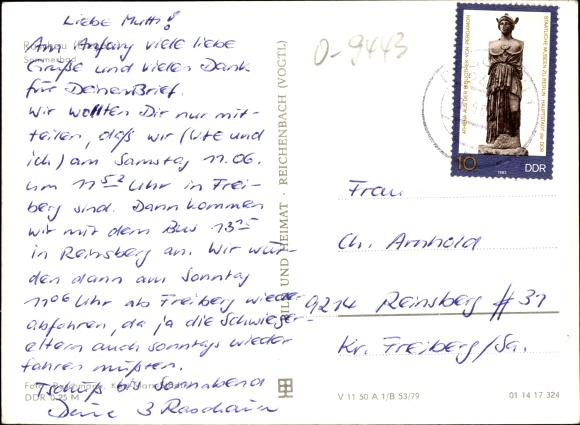 Liebe Mutti!
Am Anfang viele liebe
Grüße und vielen Dank
für Deinen Brief.
Wir wollten Dir nur mit-
teilen, daß wir (Ute und
ich) am Samstag 11.06.
um 11 52 Uhr in Frei-
berg sind. Dann kommen
wir mit dem Bus 13 25
in Reinsberg an. Wir wür-
den dann am Sonntag
1106 Uhr ab Freiberg wieder
abfahren, da ja die Schwieger-
eltern auch sonntags wieder
fahren müßten.
Tschüß bis Sonnabend
Deine 3 Raschauer
Sommerbad
DDR 0,25 M
BILD UND HEIMAT · REICHENBACH (VOGTL)
0-9443
ATHENA AUS DER BIBLIOTHEK VON PERGAMON
STAATLICHE MUSEEN ZU BERLIN HAUPTSTADT der DDR
10
1983
DDR
Frau
Ch. Arnhold
9214 Reinsberg # 31
Kr. Freiberg/Sa.
V 11 50 A 1/B 53/79
01 14 17 324